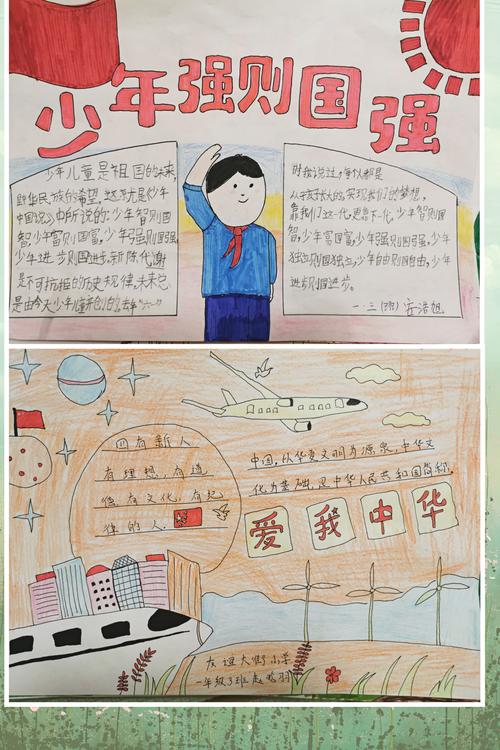 少年强则国强
少年儿童是祖国的未来,
是中华民族的希望。这就是《少年
中国说》中所说的:少年智则国
智,少年富则国富,少年强则国强,
少年进步则国进步,新陈代谢
是不可抗拒的历史规律,未来
是由今天少年儿童开创的。
时我说过,每个人都是
从孩子长大的,实现我们的梦想,
靠我们这一代,更靠下一代,少年智则国
智,少年富国富,少年强则国强,少年
独立则国独立,少年自由则国自由,少年
进步则国进步。
一·三(班)
四有新人
有理想,有道
德有文化,有纪
律的人.
中国,以华夏文明为源泉,中华文
化为基础,是中华人民共和国简称,
爱我中华
友谊大街小学
一年级3班